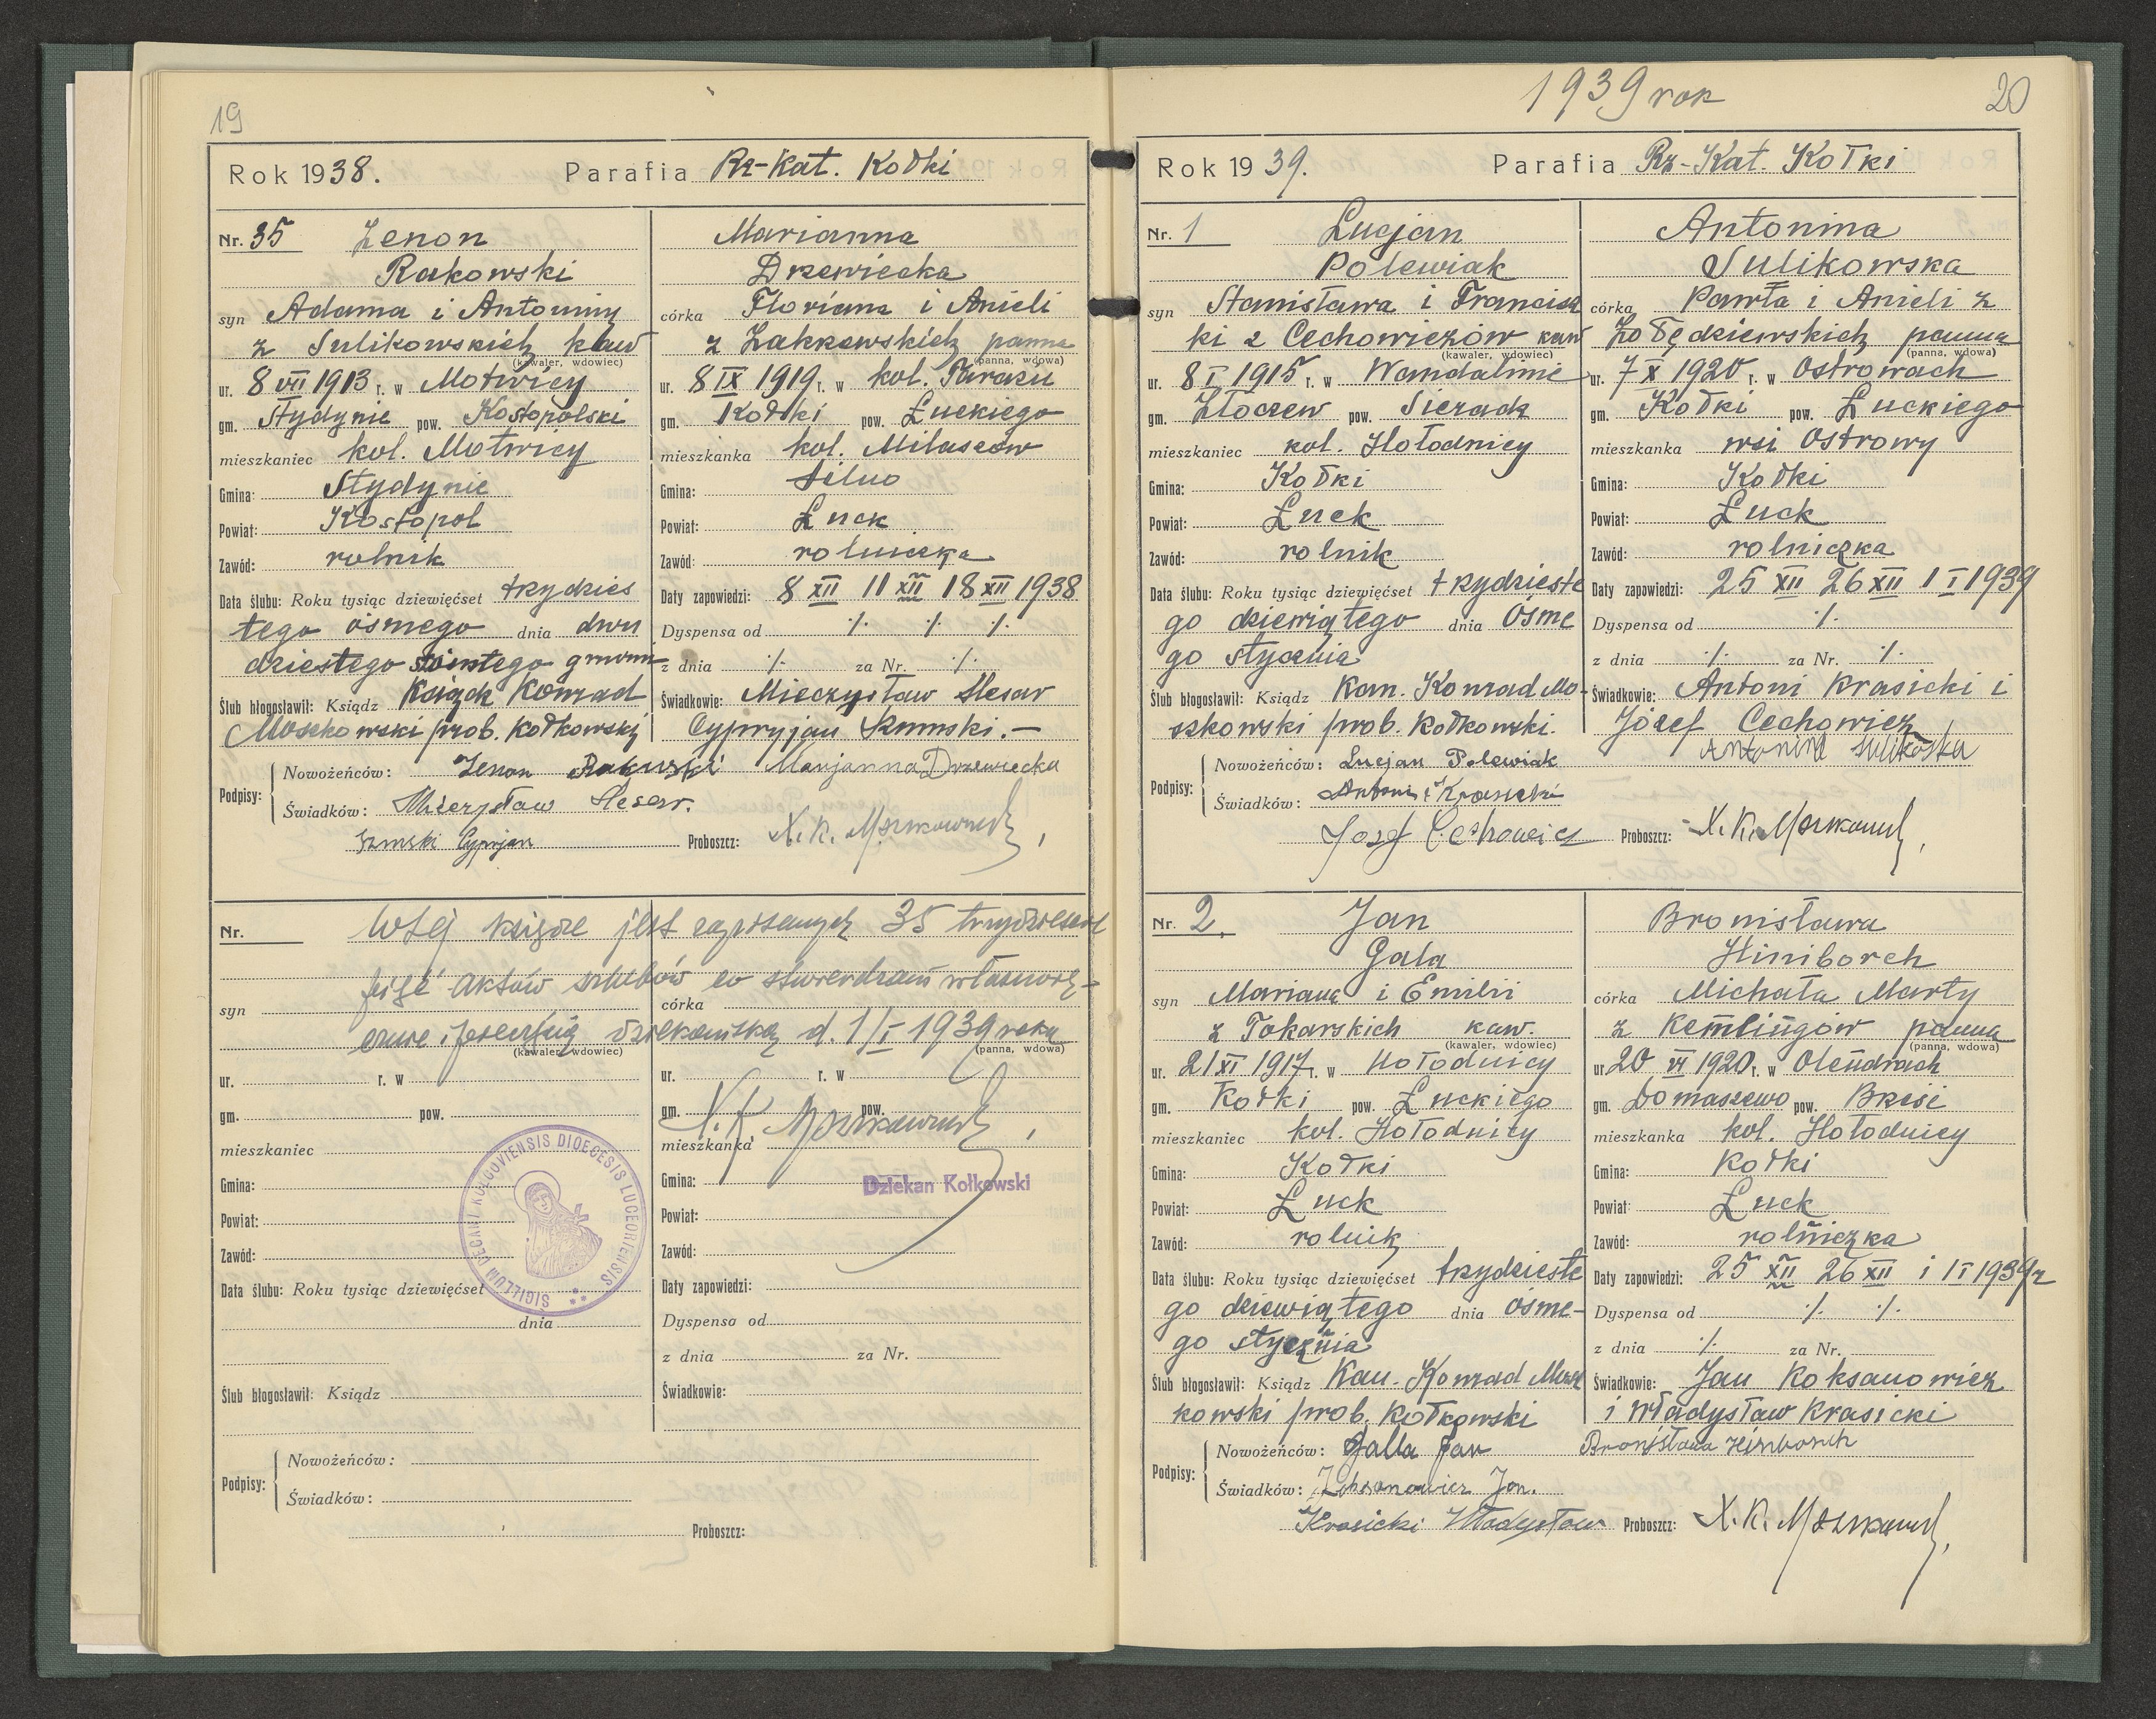 19
Rok 1938. Parafia Rz-Kat. Kołki
Nr. 35 Zenon
Rakowski
syn Adama i Antoniny
z Sulikowskich kaw
(kawaler, wdowiec)
ur. 8 VII 1913 r. w Motwicy
gm. Stydynie pow. Kostopolski
mieszkaniec kol. Motwicy
Gmina: Stydynie
Powiat: Kostopol
Zawód: rolnik
Data ślubu: Roku tysiąc dziewięćset trzydzies
tego ósmego dnia dwu
dziestego grudni
Ślub błogosławił: Ksiądz Ksiądz Konrad
Moszkowski prob. Kołkowski
Marianna
Drzewiecka
córka Floriana i Anieli
z Zakrzewskich panna
(panna, wdowa)
ur. 8 IX 1919 r. w kol. Tarażu
gm. Kołki pow. Łuckiego
mieszkanka kol. Milaszów
Gmina: Silno
Powiat: Łuck
Zawód: rolniczka
Daty zapowiedzi: 8 XII 11 XII 18 XII 1938
Dyspensa od ./. ./. ./.
z dnia ./. za Nr. ./.
Świadkowie: Mieczysław Slesar
Cypryjan Szumski.—
Podpisy:
Nowożeńców: Zenon Rakuwski Marjanna Drzewiecka
Świadków: Mieczysław Slesar.
Szmski Cyprjan Proboszcz: X. K. Moszkowski
Nr. W tej księdze jest zapisanych 35 trzydzieści
pięć aktów ślubów co stwierdzam własnorę-
syn córka
cznie i pieczęcią dziekańską d. 1/I 1939 roku
(kawaler, wdowiec) (panna, wdowa)
ur. r. w
gm. pow.
mieszkaniec
Gmina:
Powiat:
Zawód:
Data ślubu: Roku tysiąc dziewięćset
dnia
Ślub błogosławił: Ksiądz
SIGILLUM DECANI KOLCOVIENSIS DIOECESIS LUCEORIENSIS
ur. r. w
gm. pow.
X. K. Moszkowski
mieszkanka
Gmina: Dziekan Kołkowski
Powiat:
Zawód:
Daty zapowiedzi:
Dyspensa od
z dnia za Nr.
Świadkowie:
Podpisy:
Nowożeńców:
Świadków:
Proboszcz:
1939 rok 20
Rok 1939. Parafia Rz-Kat. Kołki
Nr. 1 Lucjan
Polewiak
syn Stanisława i Francisz
ki z Cechowiczów kaw
(kawaler, wdowiec)
ur. 8 I 1915 r. w Wandalinie
gm. Złoczew pow. Sieradz
mieszkaniec kol. Hołodnicy
Gmina: Kołki
Powiat: Łuck
Zawód: rolnik
Data ślubu: Roku tysiąc dziewięćset trzydzieste
go dziewiątego dnia ósme
go stycznia
Ślub błogosławił: Ksiądz Kan. Konrad Mo-
szkowski prob. Kołkowski.
Antonina
Sulikowska
córka Pawła i Anieli z
Żołędziewskich panna
(panna, wdowa)
ur. 7 X 1920 r. w Ostrowach
gm. Kołki pow. Łuckiego
mieszkanka wsi Ostrowy
Gmina: Kołki
Powiat: Łuck
Zawód: rolniczka
Daty zapowiedzi: 25 XII 26 XII 1 I 1939
Dyspensa od ./.
z dnia ./. za Nr. ./.
Świadkowie: Antoni Krasicki i
Józef Cechowicz
Podpisy:
Nowożeńców: Lucjan Polewiak Antonina Sulikoska
Świadków: Antoni Krasicki
Jozef Cechowicz Proboszcz: X. K. Moszkowski
Nr. 2. Jan
Gala
syn Mariana i Emilii
z Tokarskich kaw.
(kawaler, wdowiec)
ur. 21 XI 1917 r. w Hołodnicy
gm. Kołki pow. Łuckiego
mieszkaniec kol. Hołodnicy
Gmina: Kołki
Powiat: Łuck
Zawód: rolnik
Data ślubu: Roku tysiąc dziewięćset trzydzieste
go dziewiątego dnia ósme-
go stycznia
Ślub błogosławił: Ksiądz Kan. Konrad Mosz
kowski prob. Kołkowski
Bronisława
Hiniborch
córka Michała Marty
z Kemlingów panna
(panna, wdowa)
ur. 20 VI 1920 r. w Olendrach
gm. Domaszewo pow. Brześć
mieszkanka kol. Hołodnicy
Gmina: Kołki
Powiat: Łuck
Zawód: rolniczka
Daty zapowiedzi: 25 XII 26 XII i 1 I 1939 r
Dyspensa od ./. ./.
z dnia ./. za Nr.
Świadkowie: Jan Koksanowicz
i Władysław Krasicki
Podpisy:
Nowożeńców: Galla Jan Bronisława Hinborch
Świadków: Jan.
Krasicki Władysław Proboszcz: X. K. Moszkowski